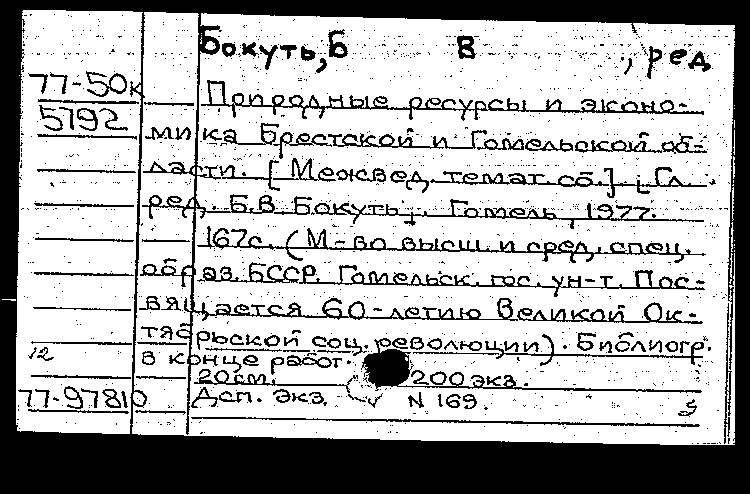 Бокуть, Б В , ред
77-50к
5792
Природные ресурсы и эконо-
мика Брестской и Гомельской об-
ласти. [Межвед. темат. сб.] [Гл.
ред. Б.В. Бокуть]. Гомель, 1977.
167с. (М-во высш. и сред. спец.
образ. БССР. Гомельск. гос. ун-т. Пос-
вящается 60-летию Великой Ок-
тябрьской соц. революции). Библиогр.
в конце работ.
12
20см. 200 экз.
77-97810
Дсп. Экз. N 169.